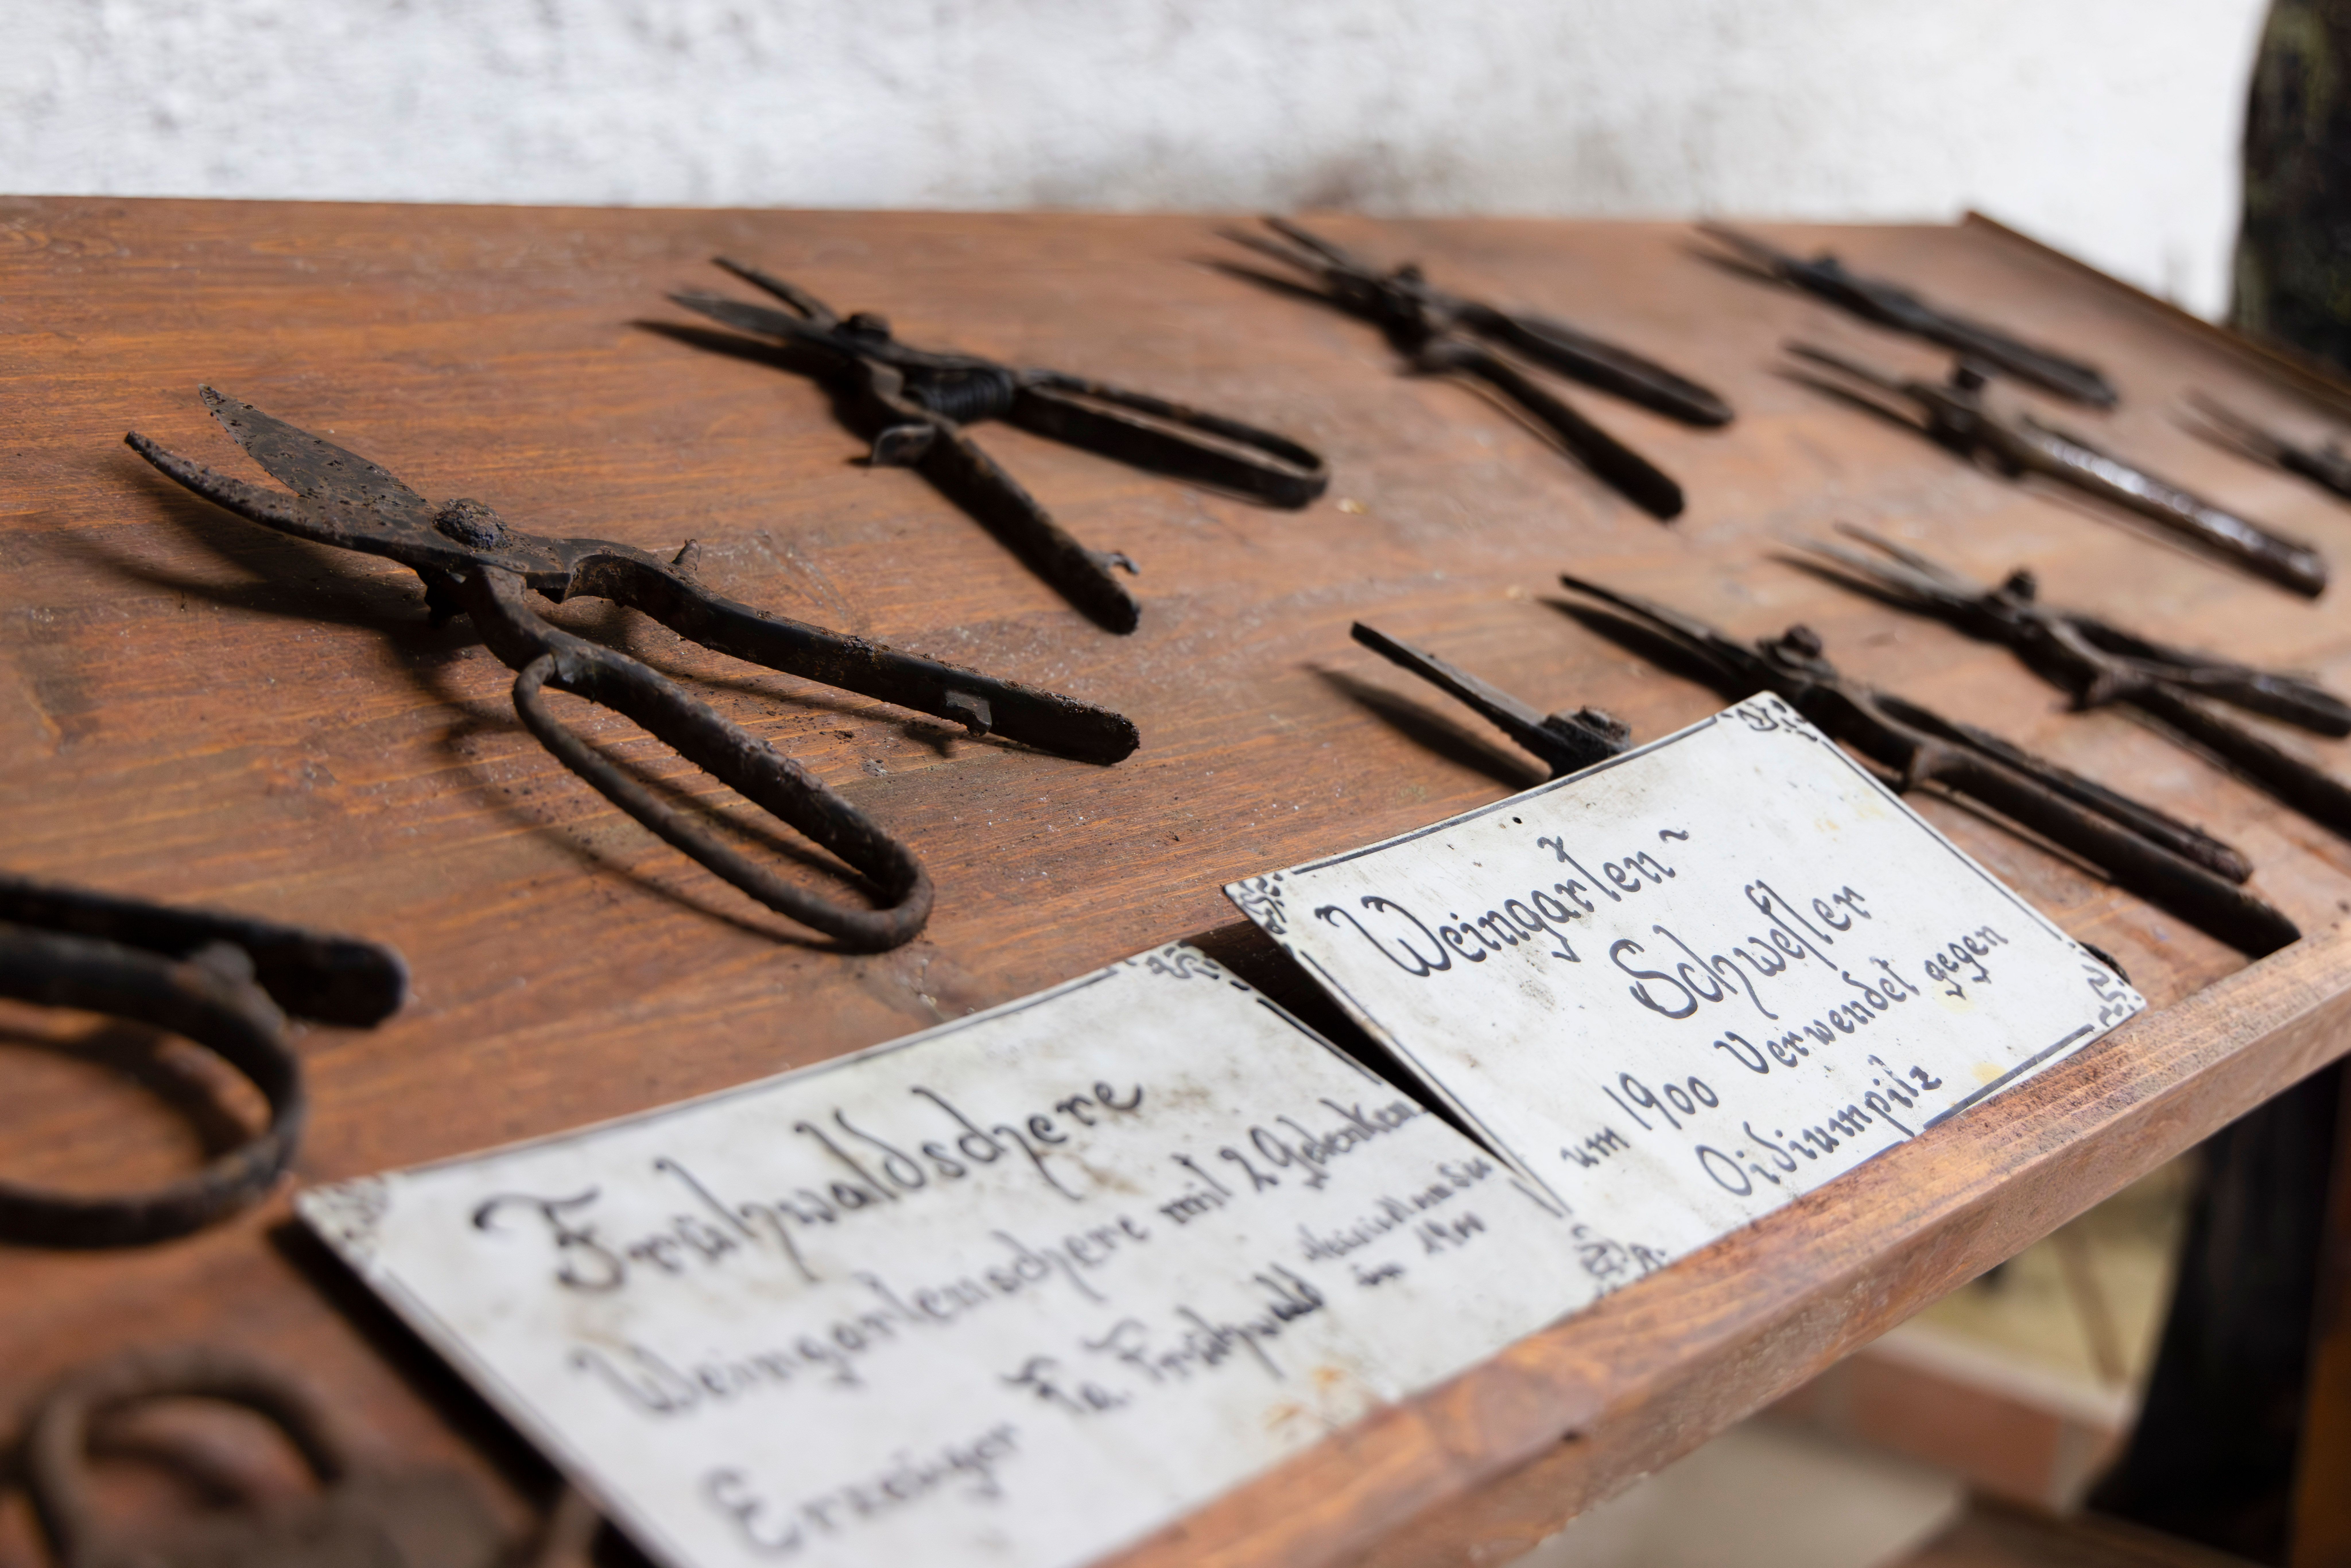 Frühwaldschere
Weingartenschere mit 2 Gelenken
Erzeuger Fa. Frühwald
in 1900
Weingarten-
Schwefler
um 1900 Verwendet gegen
Oidiumpilz